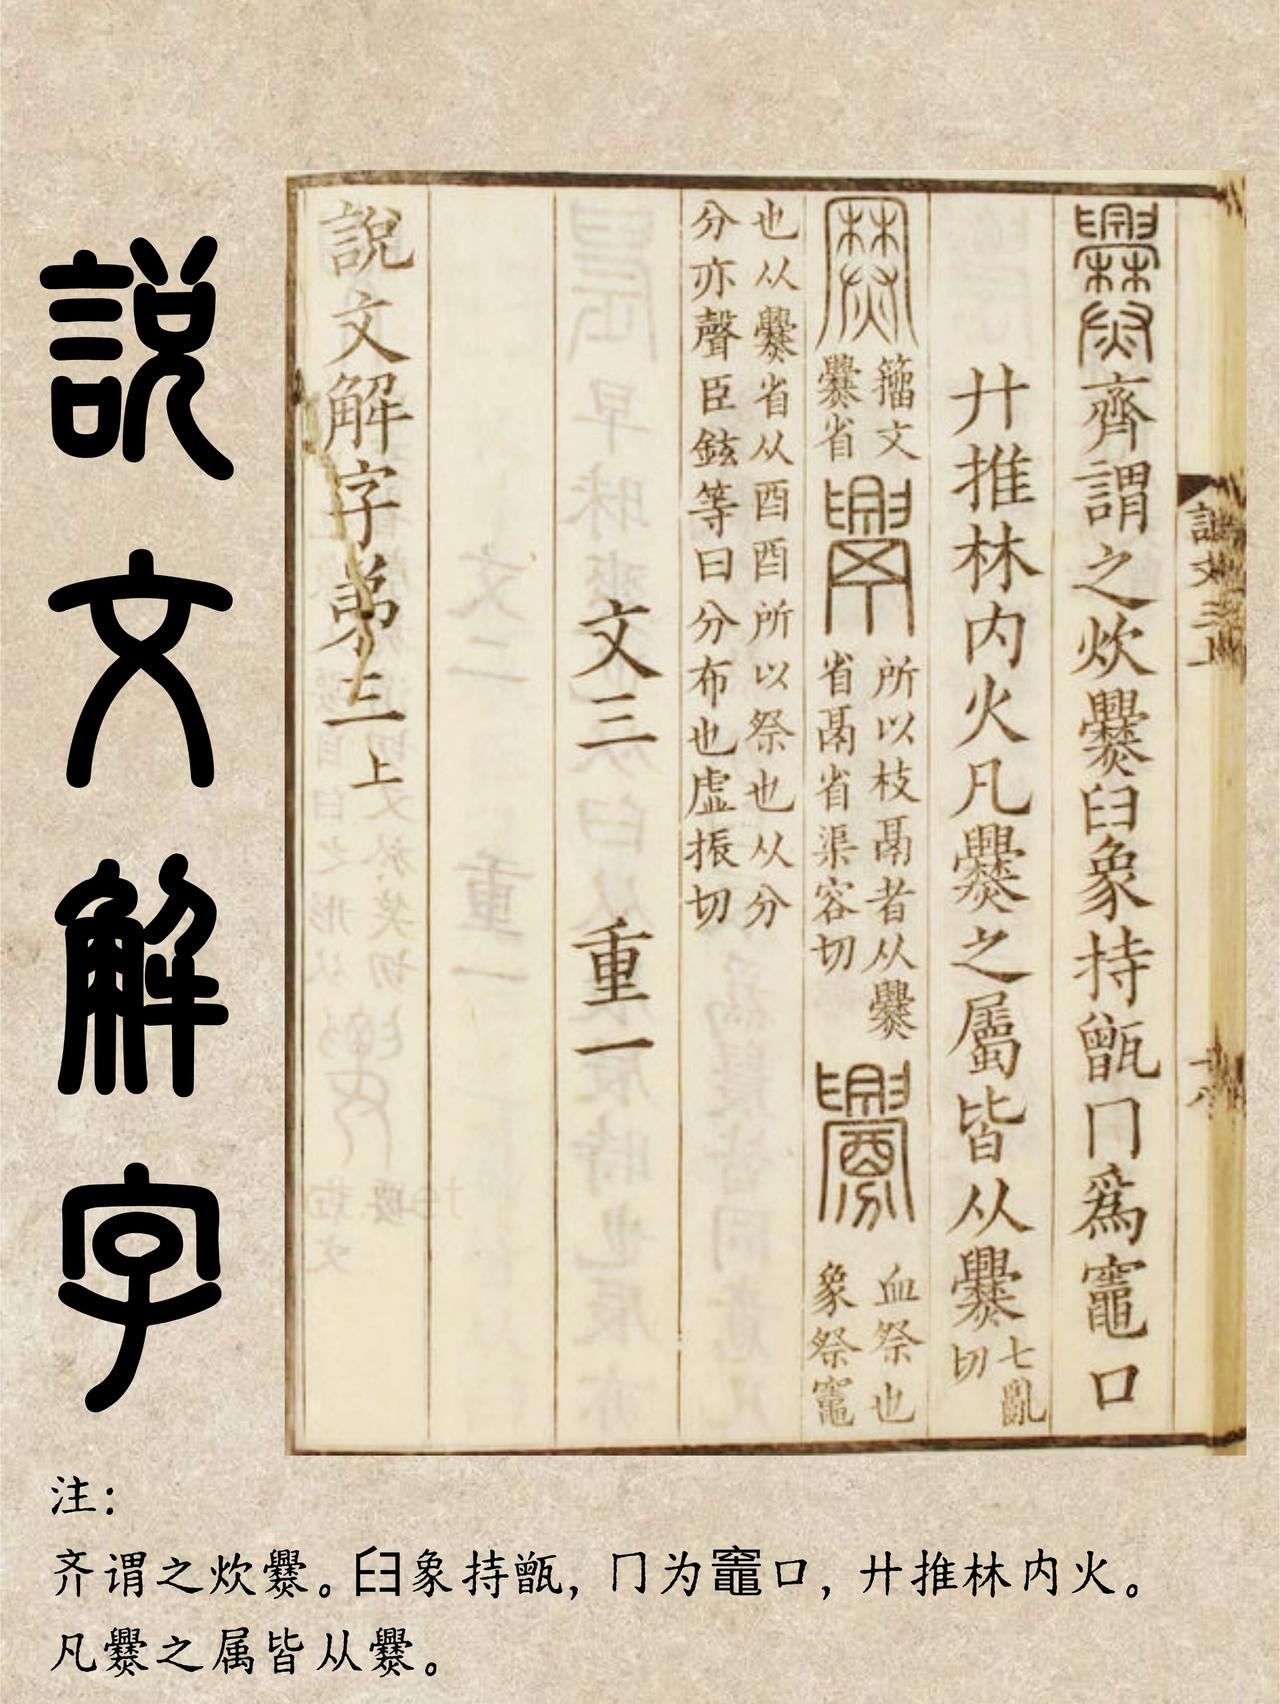 說文解字
爨齊謂之炊爨𦥑象持甑冂爲竈口
廾推林内火凡爨之屬皆从爨七亂切
籒文爨省
所以枝鬲者从爨省鬲省渠容切
血祭也象祭竈
也从爨省从酉酉所以祭也从分
分亦聲臣鉉等曰分布也虛振切
文三 重一
說文解字弟三上
說文三上
十八
注：
齐谓之炊爨。𦥑象持甑，冂为竈口，廾推林内火。
凡爨之属皆从爨。